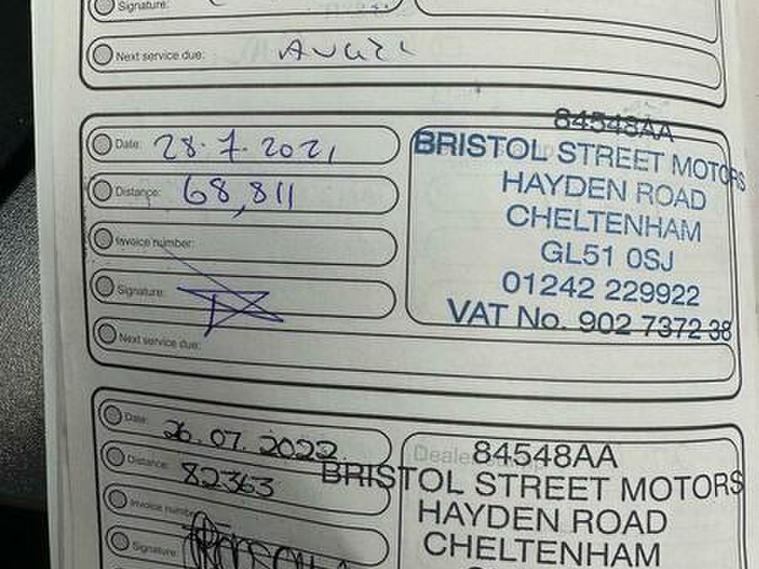 Signature:
Next service due:
Date: 28.7.2021
Distance: 68,811
Invoice number:
Signature:
Next service due:
84548AA
BRISTOL STREET MOTORS
HAYDEN ROAD
CHELTENHAM
GL51 0SJ
01242 229922
VAT No. 902 7372 38
Date: 26.07.2022
Distance: 82363
Invoice number
Signature:
Dealer stamp
84548AA
BRISTOL STREET MOTORS
HAYDEN ROAD
CHELTENHAM